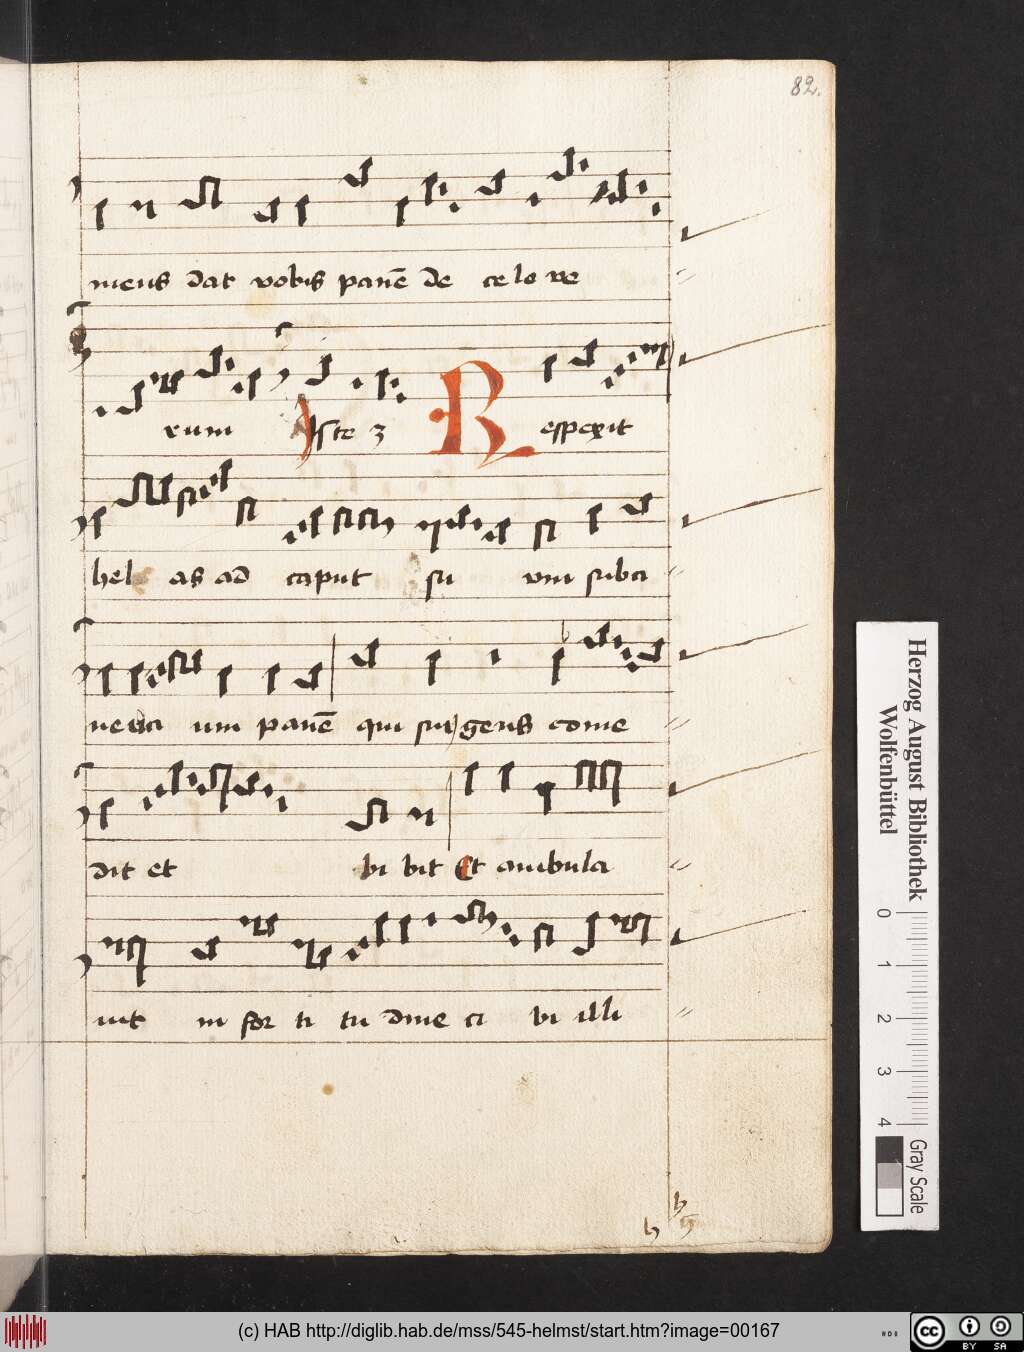 82.
meus dat vobis panē de celo ve
rum Iste ꝫ Respexit
helyas ad caput su um subci
nerici um panē qui surgens come
dit et bi bit Et ambula
uit in for ti tu dine ci bi illi
h
h
Herzog August Bibliothek
Wolfenbüttel
0 1 2 3 4
Gray Scale
(c) HAB http://diglib.hab.de/mss/545-helmst/start.htm?image=00167
cc BY SA